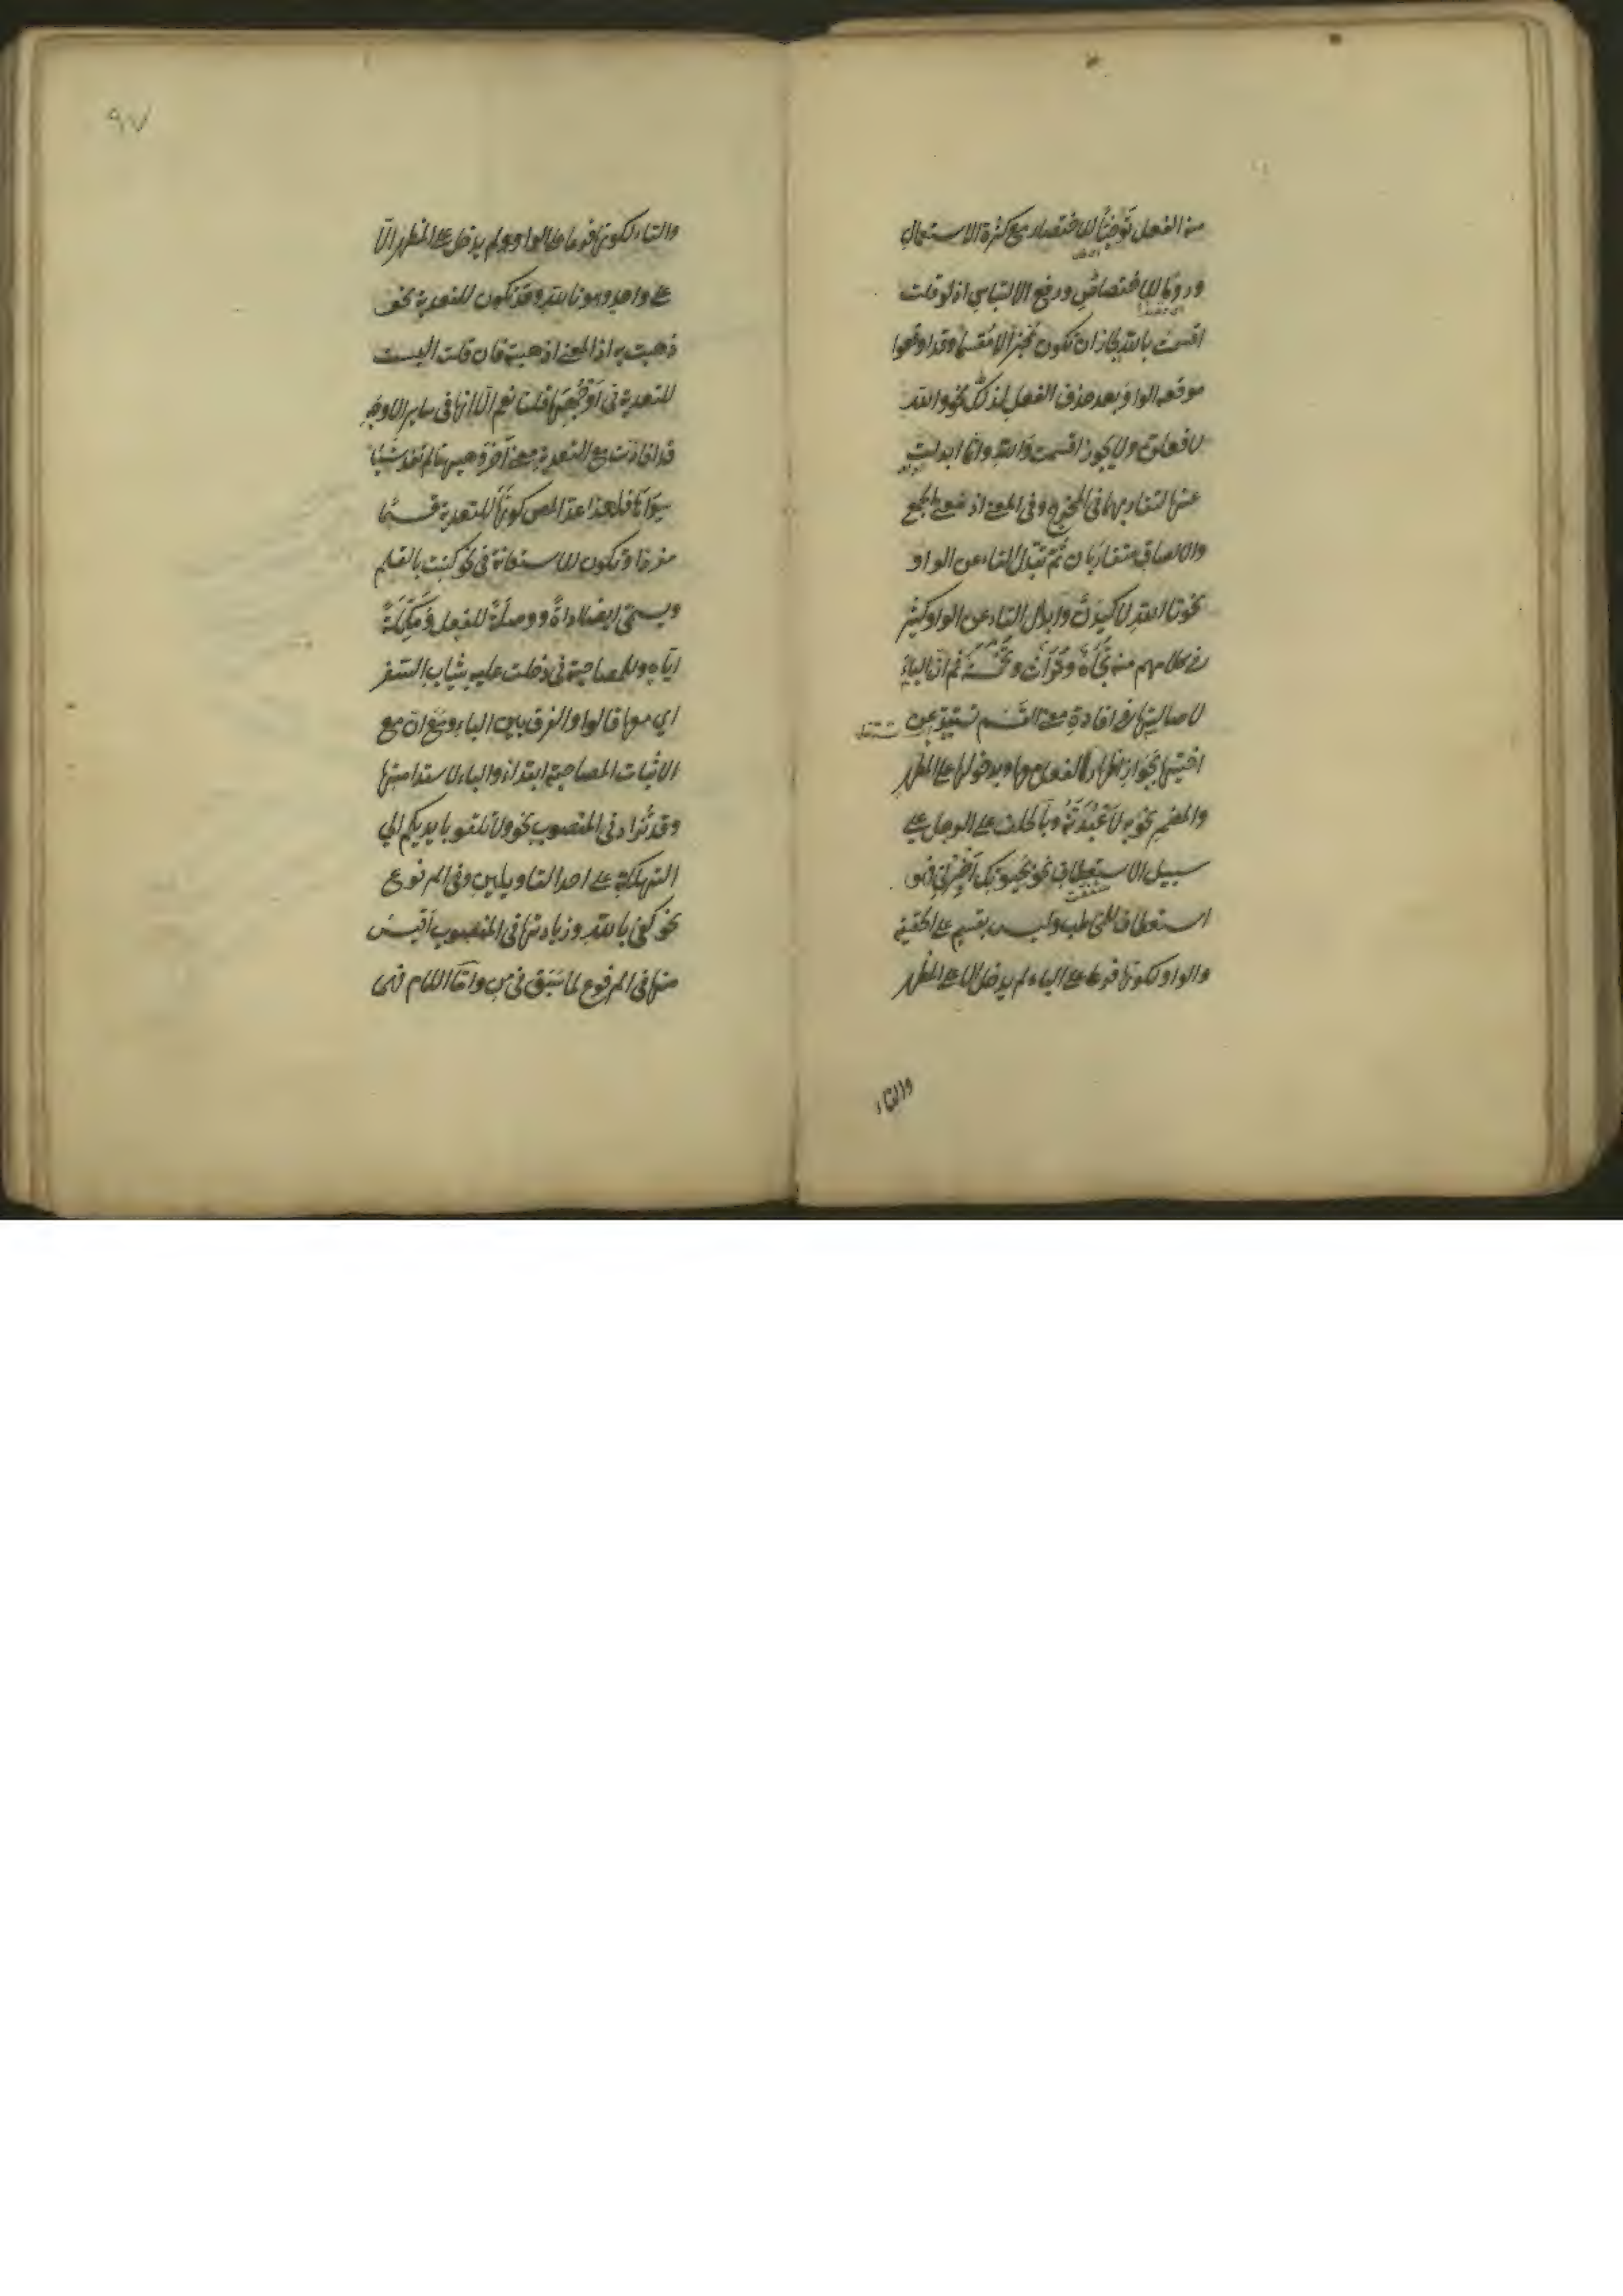 من الفعل توخيًا للاختصار مع كثرة الاستعمال
ورومًا للاختصاص ورفع الالتباس اذ لو قلت
اقسمت بالله جاز ان تكون مخبرا لا مقسما وقد اوقعوا
موقعه الواو بعد حذف الفعل لذلك نحو والله
لافعلن ولا يجوز اقسمت والله وانما ابدلت
عنها لتقاربهما في المخرج وفي المعنى اذ معنى الجمع
والالصاق متقاربان ثم تبدل التاء عن الواو
نحو تالله لاكيدن وابدال التاء عن الواو كثير
في كلامهم منه تجاه وتراث وتخمة ثم ان الباء
لاصالتها في افادة معنى القسم تستبد عن
اختيها بجواز اظهار الفعل معها وبدخولها على المظهر
والمضمر نحو به لاعبدنه وبالحلف على الرجل على
سبيل الاستعطاف نحو بحيوتك اخبرني فهو
استعطاف للمخاطب وليس بقسم على الحقيقة
والواو لكونها فرعا على الباء لم يدخل الا على المظهر
والتاء
٩٧
والتاء لكونها فرعا على الواو ولم يدخل على المظهر الا
على واحد وهو تالله وقد تكون للتعدية نحو
ذهبت به اذ المعنى اذهبته فان قلت اليست
للتعدية في اوجهها قلت نعم الا انها في ساير الاوجه
قد افادت مع التعدية معنى آخر وههنا لم تفد شيئا
سواها فلهذا عد المص كونها للتعدية قسما
منفردا وتكون للاستعانة في نحو كتبت بالقلم
ويسمى ايضا اداة ووصلة للفعل ومكملة
اياه وللمصاحبة في دخلت عليه بثياب السفر
اي معها قالوا والفرق بين الباء ومع ان مع
لاثبات المصاحبة ابتداء والباء لاستدامتها
وقد تزاد في المنصوب نحو ولا تلقوا بايديكم الى
التهلكة على احد التاويلين وفي المرفوع
نحو كفى بالله وزيادتها في المنصوب اقيس
منها في المرفوع لما سبق في من واما اللام فهى